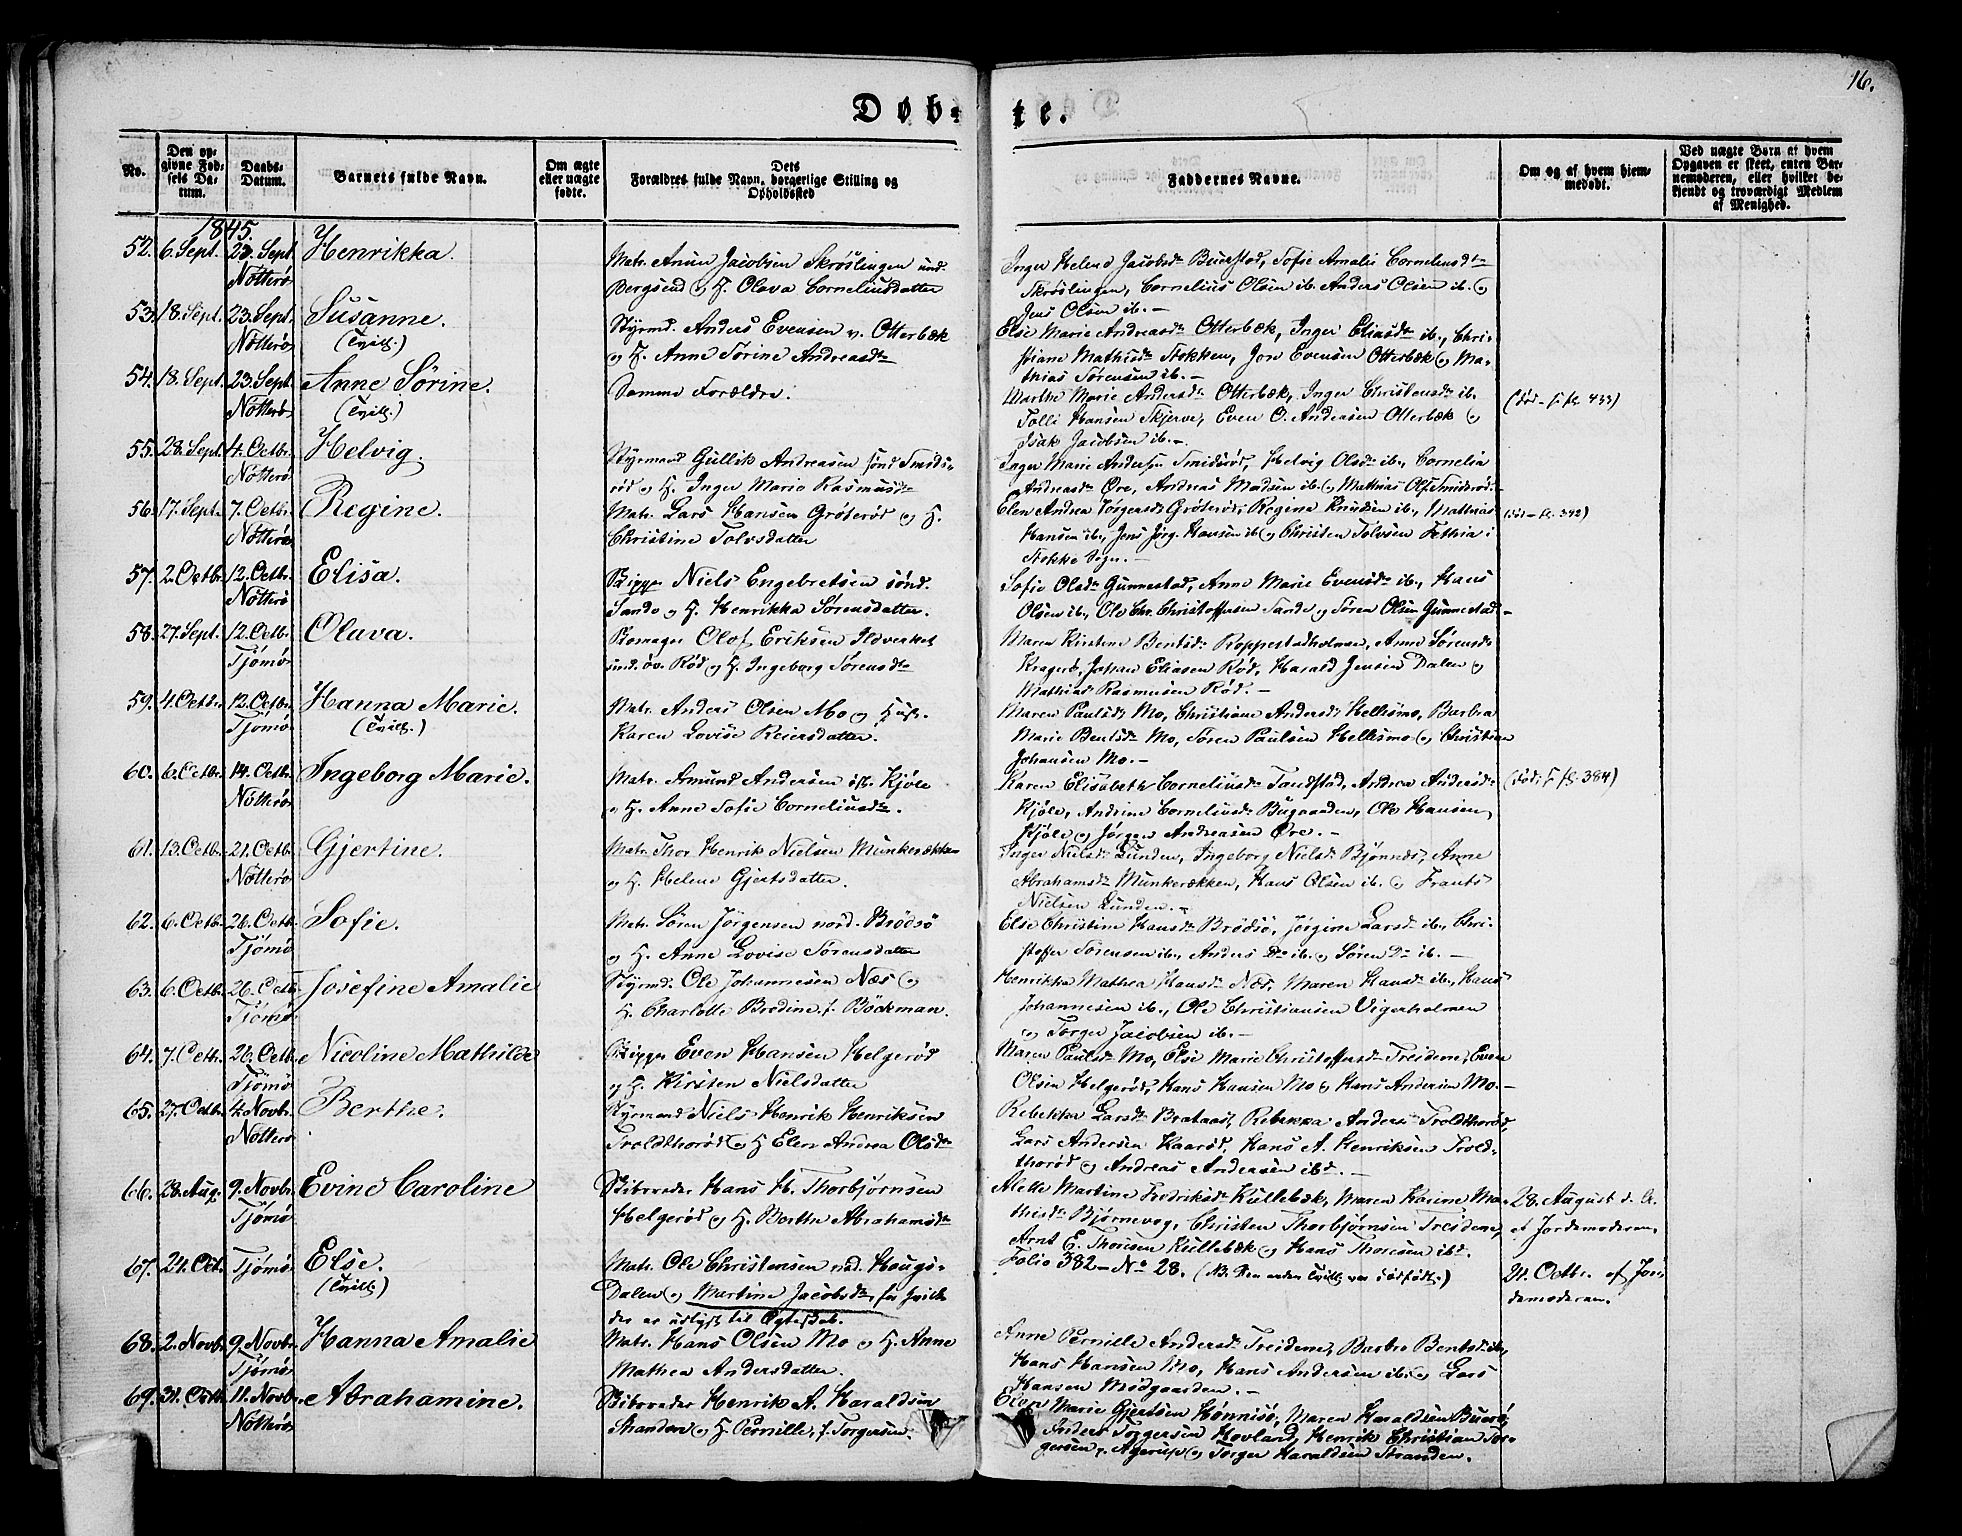 Døb- te. 16.
No.
Den opgivne Fødsels Datum.
Daabs-Datum.
Barnets fulde Navn.
Om ægte eller uægte fødte.
Dets Forældres fulde Navn, borgerlige Stilling og Opholdssted
Faddernes Navne.
Om og af hvem hjemmedøbt.
Ved uægte Børn af hvem Opgaven er skeet, enten Barnemoderen, eller hvilket bekjendt og troværdigt Medlem af Menighed.
1845.
52. 6. Sept. 23. Sept. Nøtterø Henrikka.
Matr. Anun Jacobsen Skrøslingen und.
Bergsend og H. Olava Corneliusdatter
Inger Helene Jacobsdr Buerstad, Sofie Amalie Corneliusdtr
Skrøslingen, Cornelius Olsen ib. Anders Olsen ib. og
Jens Olsen ib. –
53. 18. Sept. 23. Sept. Nøtterø Susanne. (Tvill.)
Styrmd. Anders Evensen v. Otterbæk
og H. Anne Sørine Andreasdtr
Else Marie Andreasdr Otterbæk, Inger Eliasdr ib., Chri-
stiane Mathisdr Stokken, Jon Evensen Otterbæk og Ma-
thias Sørensen ib. –
54. 18. Sept. 23. Sept. Nøtterø Anne Sørine. (Tvill.)
Samme Forældre.
Marthe Marie Andersdr Otterbæk, Inger Christensdr ib.
Tolli Hansen Skjerve, Even O. Andersen Otterbæk og
Isak Jacobsen ib. –
(død – F. fl. 433)
55. 28. Sept. 4. Octbr. Nøtterø Helvig.
Styrmand Gullik Andreasen sønd Smids-
rød og H. Inger Marie Rasmusdtr
Inger Marie Andersen Smidsrød, Helvig Olsdr ib., Cornelia
Andreasdr Øre, Andreas Madsen ib. og Mathias Ols. Smidsrød. –
56. 17. Sept. 7. Octbr. Nøtterø Regine.
Matr. Lars Hansen Grøterød og H.
Christine Tolvsdatter
Elen Andrea Jørgensdr Grøterød, Regine Knudsen ib., Mathias
Hansen ib., Jens Jørg. Hansen ib. og Christen Tolvsen Fethia i
Stokke Sogn. –
(død – fl. 342)
57. 2. Octbr. 12. Octbr. Nøtterø Elisa.
Skipper Niels Engebretsen sønd.
Sande og H. Henrikka Sørensdatter.
Sofie Olsdr Gunnestad, Anne Marie Evensdr ib., Hans
Olsen ib., Ole Chr. Christoffersen Sande og Søren Olsen Gunnestad –
58. 27. Sept. 12. Octbr. Tjømø Olava.
Skomager Olof Eriksen Ildverket
und. øv. Rød og H. Ingeborg Sørensdtr
Maren Kirstine Bentsdr Roppestadholmen, Anne Sørensdr
Kragerø, Johan Eliasen Rød, Harald Jensen Dalen og
Mathias Rasmusen Rød. –
59. 4. Octbr. 12. Octbr. Tjømø Hanna Marie. (Tvill.)
Matr. Anders Olsen Mo og Hust.
Karen Lovise Reiersdatter.
Maren Paulsdr Mo, Christiane Andersdr Hellesmo, Barbra
Marie Bentsdr Mo, Søren Paulsen Hellesmo og Christian
Johansen Mo. –
60. 6. Octbr. 14. Octbr. Nøtterø Ingeborg Marie.
Matr. Amund Andersen østr. Kjøle
og H. Anne Sofie Corneliusdtr.
Karen Elisabeth Corneliusdr Tandstad, Andrea Andersdr
Kjøle, Andrine Corneliusdr Bugaarden, Ole Hansen
Kjøle og Jørgen Andreasen Øre. –
(død; F. fl. 384)
61. 13. Octbr. 21. Octbr. Nøtterø Gjertine.
Matr. Thor Henrik Nielsen Munkerækken
og H. Helene Gjertsdatter.
Inger Nielsdr Lunden, Ingeborg Nielsdr Bjønnes, Anne
Abrahamsdr Munkerækken, Hans Olsen ib. og Frants
Nielsen Lunden. –
62. 6. Octbr. 26. Octbr. Tjømø Sofie.
Matr. Søren Jørgensen nord. Brødsø
og H. Anne Lovise Sørensdatter
Else Christine Hansdr Brødsø, Jørgine Larsdr ib., Chri-
stoffer Sørensen ib., Anders Do ib. og Søren Do ib. –
63. 6. Octbr. 26. Octbr. Tjømø Josefine Amalie
Styrmd. Ole Johannesen Næs og
H. Charlotte Brodine f. Bøckman.
Henrikka Mathea Hansdr Næs, Maren Hansdr ib., Hans
Johannesen ib., Ole Christiansen Vigerholmen
og Torger Jacobsen ib. –
64. 7. Octbr. 26. Octbr. Tjømø Nicoline Mathilde
Skipper Even Hansen Helgerød
og H. Kirsten Nielsdatter
Maren Paulsdr Mo, Else Marie Christoffersdr Treidene, Even
Olsen Helgerød, Hans Hansen Mo og Hans Andersen Mo. –
65. 27. Octbr. 4. Novbr. Nøtterø Berthe.
Styrmand Niels Henrik Henriksen
Troldthorød og H. Elen Andrea Olsdtr
Rebekka Larsdr Brataas, Rebekka Andersdr Troldthorød,
Lars Andersen Kaarød, Hans A. Henriksen Trold-
thorød og Andreas Andersen ibd. –
66. 28. Aug. 9. Novbr. Tjømø Evine Caroline
Skibsreder Hans H. Thorbjørnsen
Helgerød og H. Berthe Abrahamsdtr
Alette Martine Fredriksdr Kullebæk, Maren Karine Ma-
thisdr Bjørnevog, Christen Thorbjørnsen Treidene,
Arnt E. Thoresen Kullebæk og Hans Thoresen ibd.
28. August d. A.
af Jordemoderen.
67. 21. Oct. Tjømø Else. (Tvill.)
Matr. Ole Christensen nd. Haugs-
Dalen og Martine Jacobsdtr, for hvilke
der er udlyst til Ægteskab.
Folio 382 – No 28. (NB. Den anden Tvill. var dødfødt.)
21. Octbr. af Jor-
demoderen.
68. 2. Novbr. 9. Novbr. Tjømø Hanna Amalie
Matr. Hans Olsen Mo og H. Anne
Mathea Andersdatter.
Anne Pernille Andersdr Treidene, Barbro Bentsdr ib.,
Hans Hansen Mo, Hans Andersen ib. og Lars
Hansen Mødgaarden. –
69. 31. Octbr. 11. Novbr. Nøtterø Abrahamine.
Skibsreder Henrik A. Haraldsen
Stranden og H. Pernille f. Torgersen.
Elen Marie Gjertsen Hønnisø, Maren Haraldsen Buerø,
Anders Torgersen Hovland, Henrik Christian Tor-
gersen, Agerup og Torger Haraldsen Stranden.